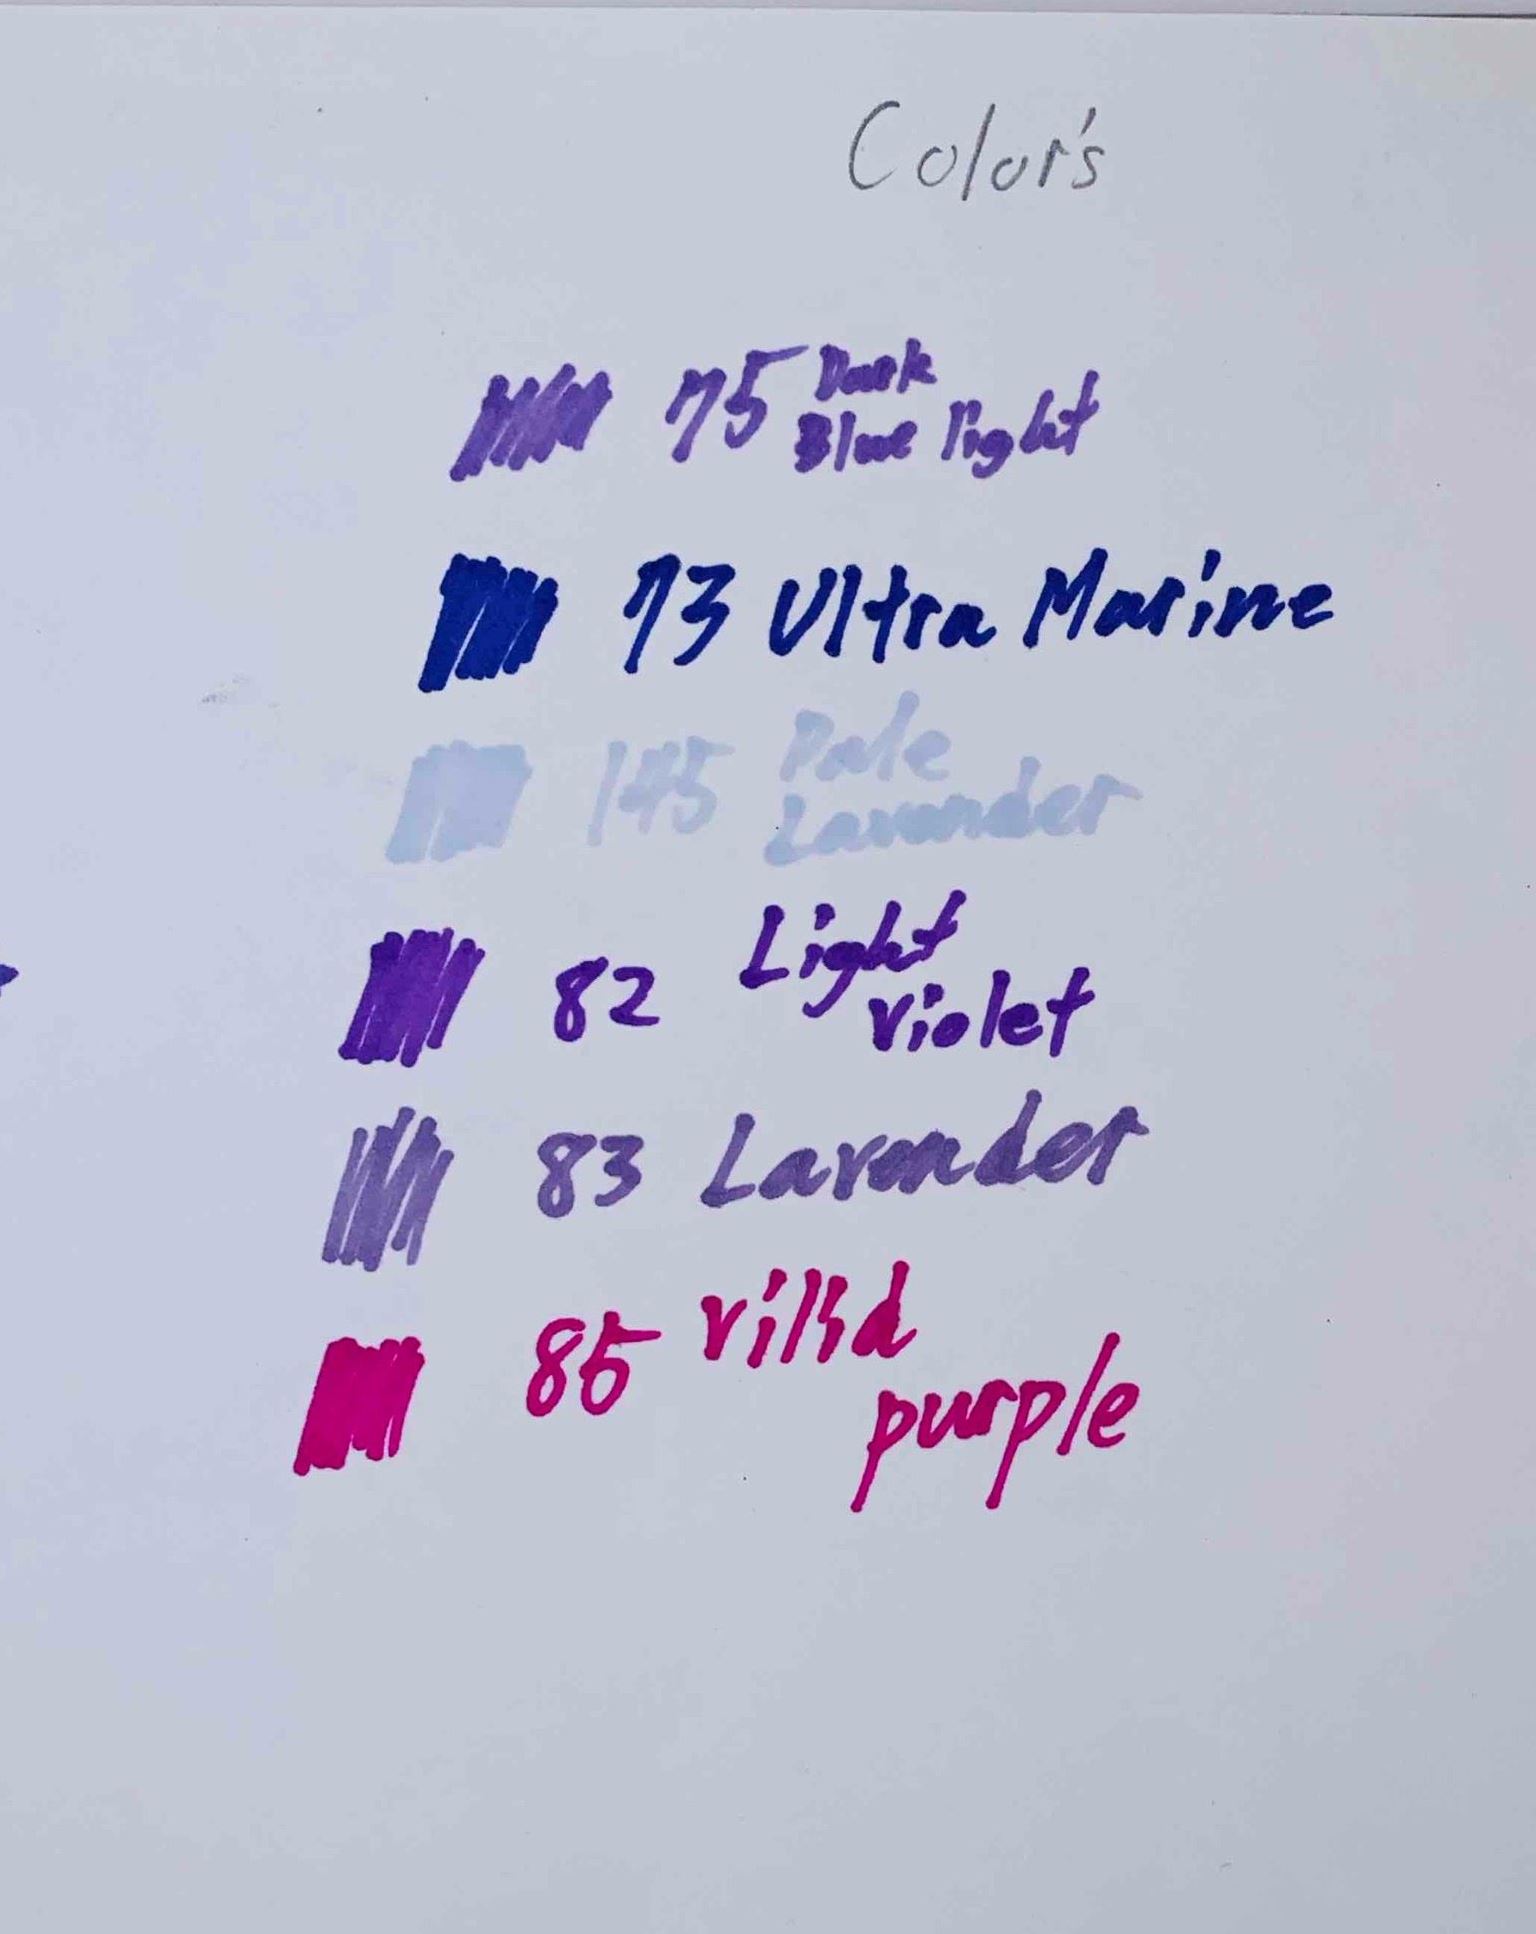 Color's
75 Dark
Blue light
73 Ultra Marine
145 Pale
Lavender
82 Light
violet
83 Lavender
85 vilid
purple